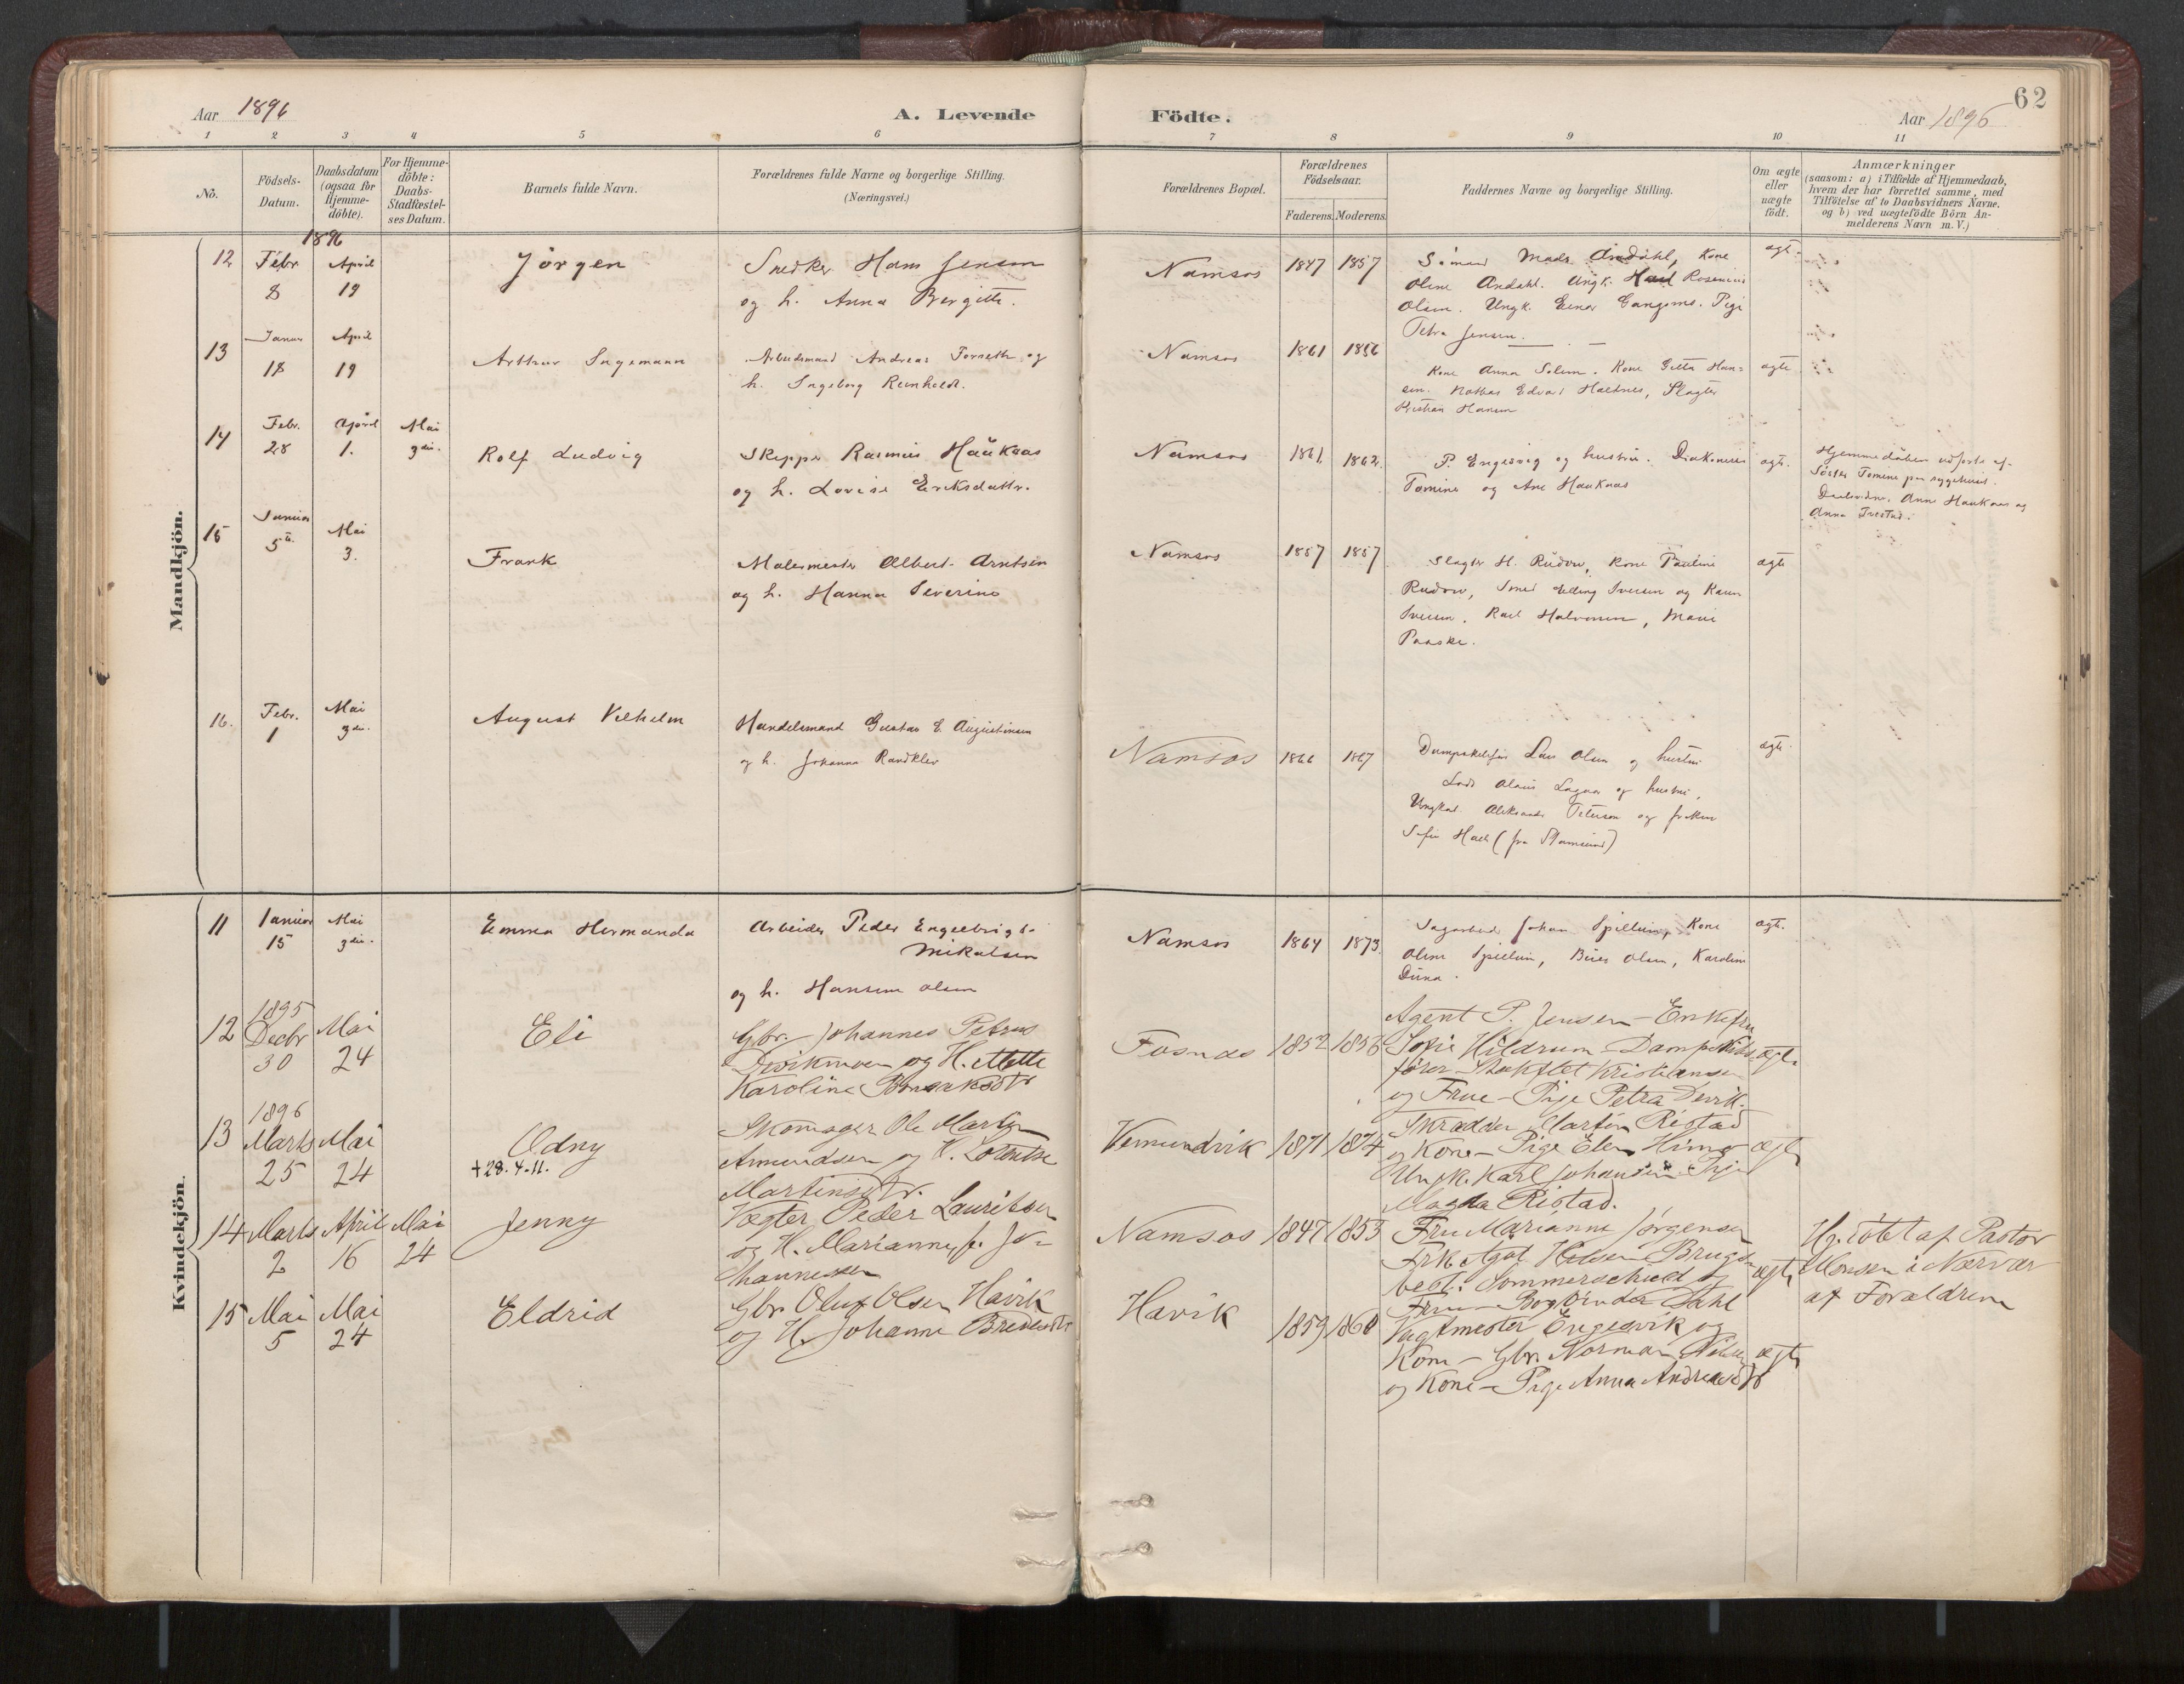 Aar 1896
A. Levende
Födte.
Aar 1896
62
1 2 3 4 5 6 7 8 9 10 11
No.
Födsels-
Datum.
Daabsdatum
(ogsaa for
Hjemme-
döbte).
For Hjemme-
döbte:
Daabs-
Stadfæstel-
ses Datum.
Barnets fulde Navn.
Forældrenes fulde Navne og borgerlige Stilling.
(Næringsvei.)
Forældrenes Bopæl.
Forældrenes
Födselsaar.
Faderens. Moderens.
Faddernes Navne og borgerlige Stilling.
Om ægte
eller
uægte
födt.
Anmærkninger
(saasom: a) i Tilfælde af Hjemmedaab,
hvem der har forrettet samme, med
Tilföielse af to Daabsvidners Navne,
og b) ved uægtefödte Börn An-
melderens Navn m. V.)
Mandkjön.
1896
12 Febr 8 April 19
Jörgen
Snedker Hans Jensen
og h. Anna Bergitte.
Namsos 1847 1857
Mads Andahl, Kone
Oline Andahl. Ungk. Rosenius
Olsen. Ungk. Einar Pige
Petra Jensen.
ægt.
13 Januar 18 April 19
Arthur Ingemann
Arbeidsmand Andreas Forseth og
h. Ingeborg Reinholdt.
Namsos 1861 1856
Kone Anna Solem. Kone Gitta Han-
sen. Edvard Slagter
Kristian Hansen
ægte
14 Febr. 28 April 1. Mai 3die.
Rolf Ludvig
Skipper Rasmus Haukaas
og h. Lovise Eriksdattr.
Namsos 1861. 1862.
P. Engesvig og hustru. Diakonisse
Tomine og Ane Haukaas
ægt.
Hjemmedåben udfört af
Söster Tomine paa sygehuset.
Daabsvidne. Anne Haukaas og
Anna
15 Januar 5te. Mai 3.
Frank
Malermester Albert Arntsen
og h. Hanna Severine
Namsos 1857 1857
Slagter H. Rudow, Kone Pauline
Rudow, Smed Elling Iversen og Karen
Iversen. Karl Halvorsen, Marie
Paaske.
ægte
16. Febr. 1 Mai 3die.
August Vilhelm
Handelsmand Gustav E. Augustinsen
og h. Johanna Randklev
Namsos 1866 1867
Lars Olsen og hustru
Lods Olaus og hustru,
Ungkarl Aleksander Peterson og fröken
Sofie (fra
ægte
Kvindekjön.
11 Januar 15 Mai 3die.
Emma Hermanda
Arbeider Peder Engelbrigt-
Mikalsen
og h. Hansine Olsen
Namsos 1864 1873.
Sagarbeid. Johan Spillum, Kone
Oline Spillum, Olsen, Karoline
Duna.
ægt.
12 1895 Decbr 30 Mai 24
Eli
Gbr. Johannes Petrus
Devikmoen og H. Mette
Karoline Bensaksdtr
Fosnæs 1852 1856
Agent P. Jensen - Enkefru
Sofie Hildrum - Dampskibs-
förer Stokflet Kristiansen
og Frue - Pige Petra Devik.
ægte
13 1896 Marts 25 Mai 24
Odny
+28.4.11.
Skomager Ole Martin
Amundsen og H. Lorentse
Martinsdtr.
Vemundvik 1871 1874
Skrædder Martin Ristad
og Kone - Pige Elen Himo
Ungk. Karl Johansen Pige
Magda Ristad.
ægte
14 Marts 2 April 16 Mai 24
Jenny
Vægter Peder Lauritsen
og H. Marianne f. Jo-
hannessen
Namsos 1847 1853
Fru Marianne Jörgensen
Frk Agot Brugs-
best. Sommerschield og
Frue - Bogbinder Dahl
ægte
Hj.döbt af Pastor
Monsen i Nærvær
af Forældrene
15 Mai 5 Mai 24
Eldrid
Gbr. Oluf Olsen Havik
og H. Johanne Bredesdtr
Havik 1859 1860
Vagtmester Engesvik og
Kone - Gbr. Norman Nilsen
og Kone - Pige Anna Andreasdtr
ægte